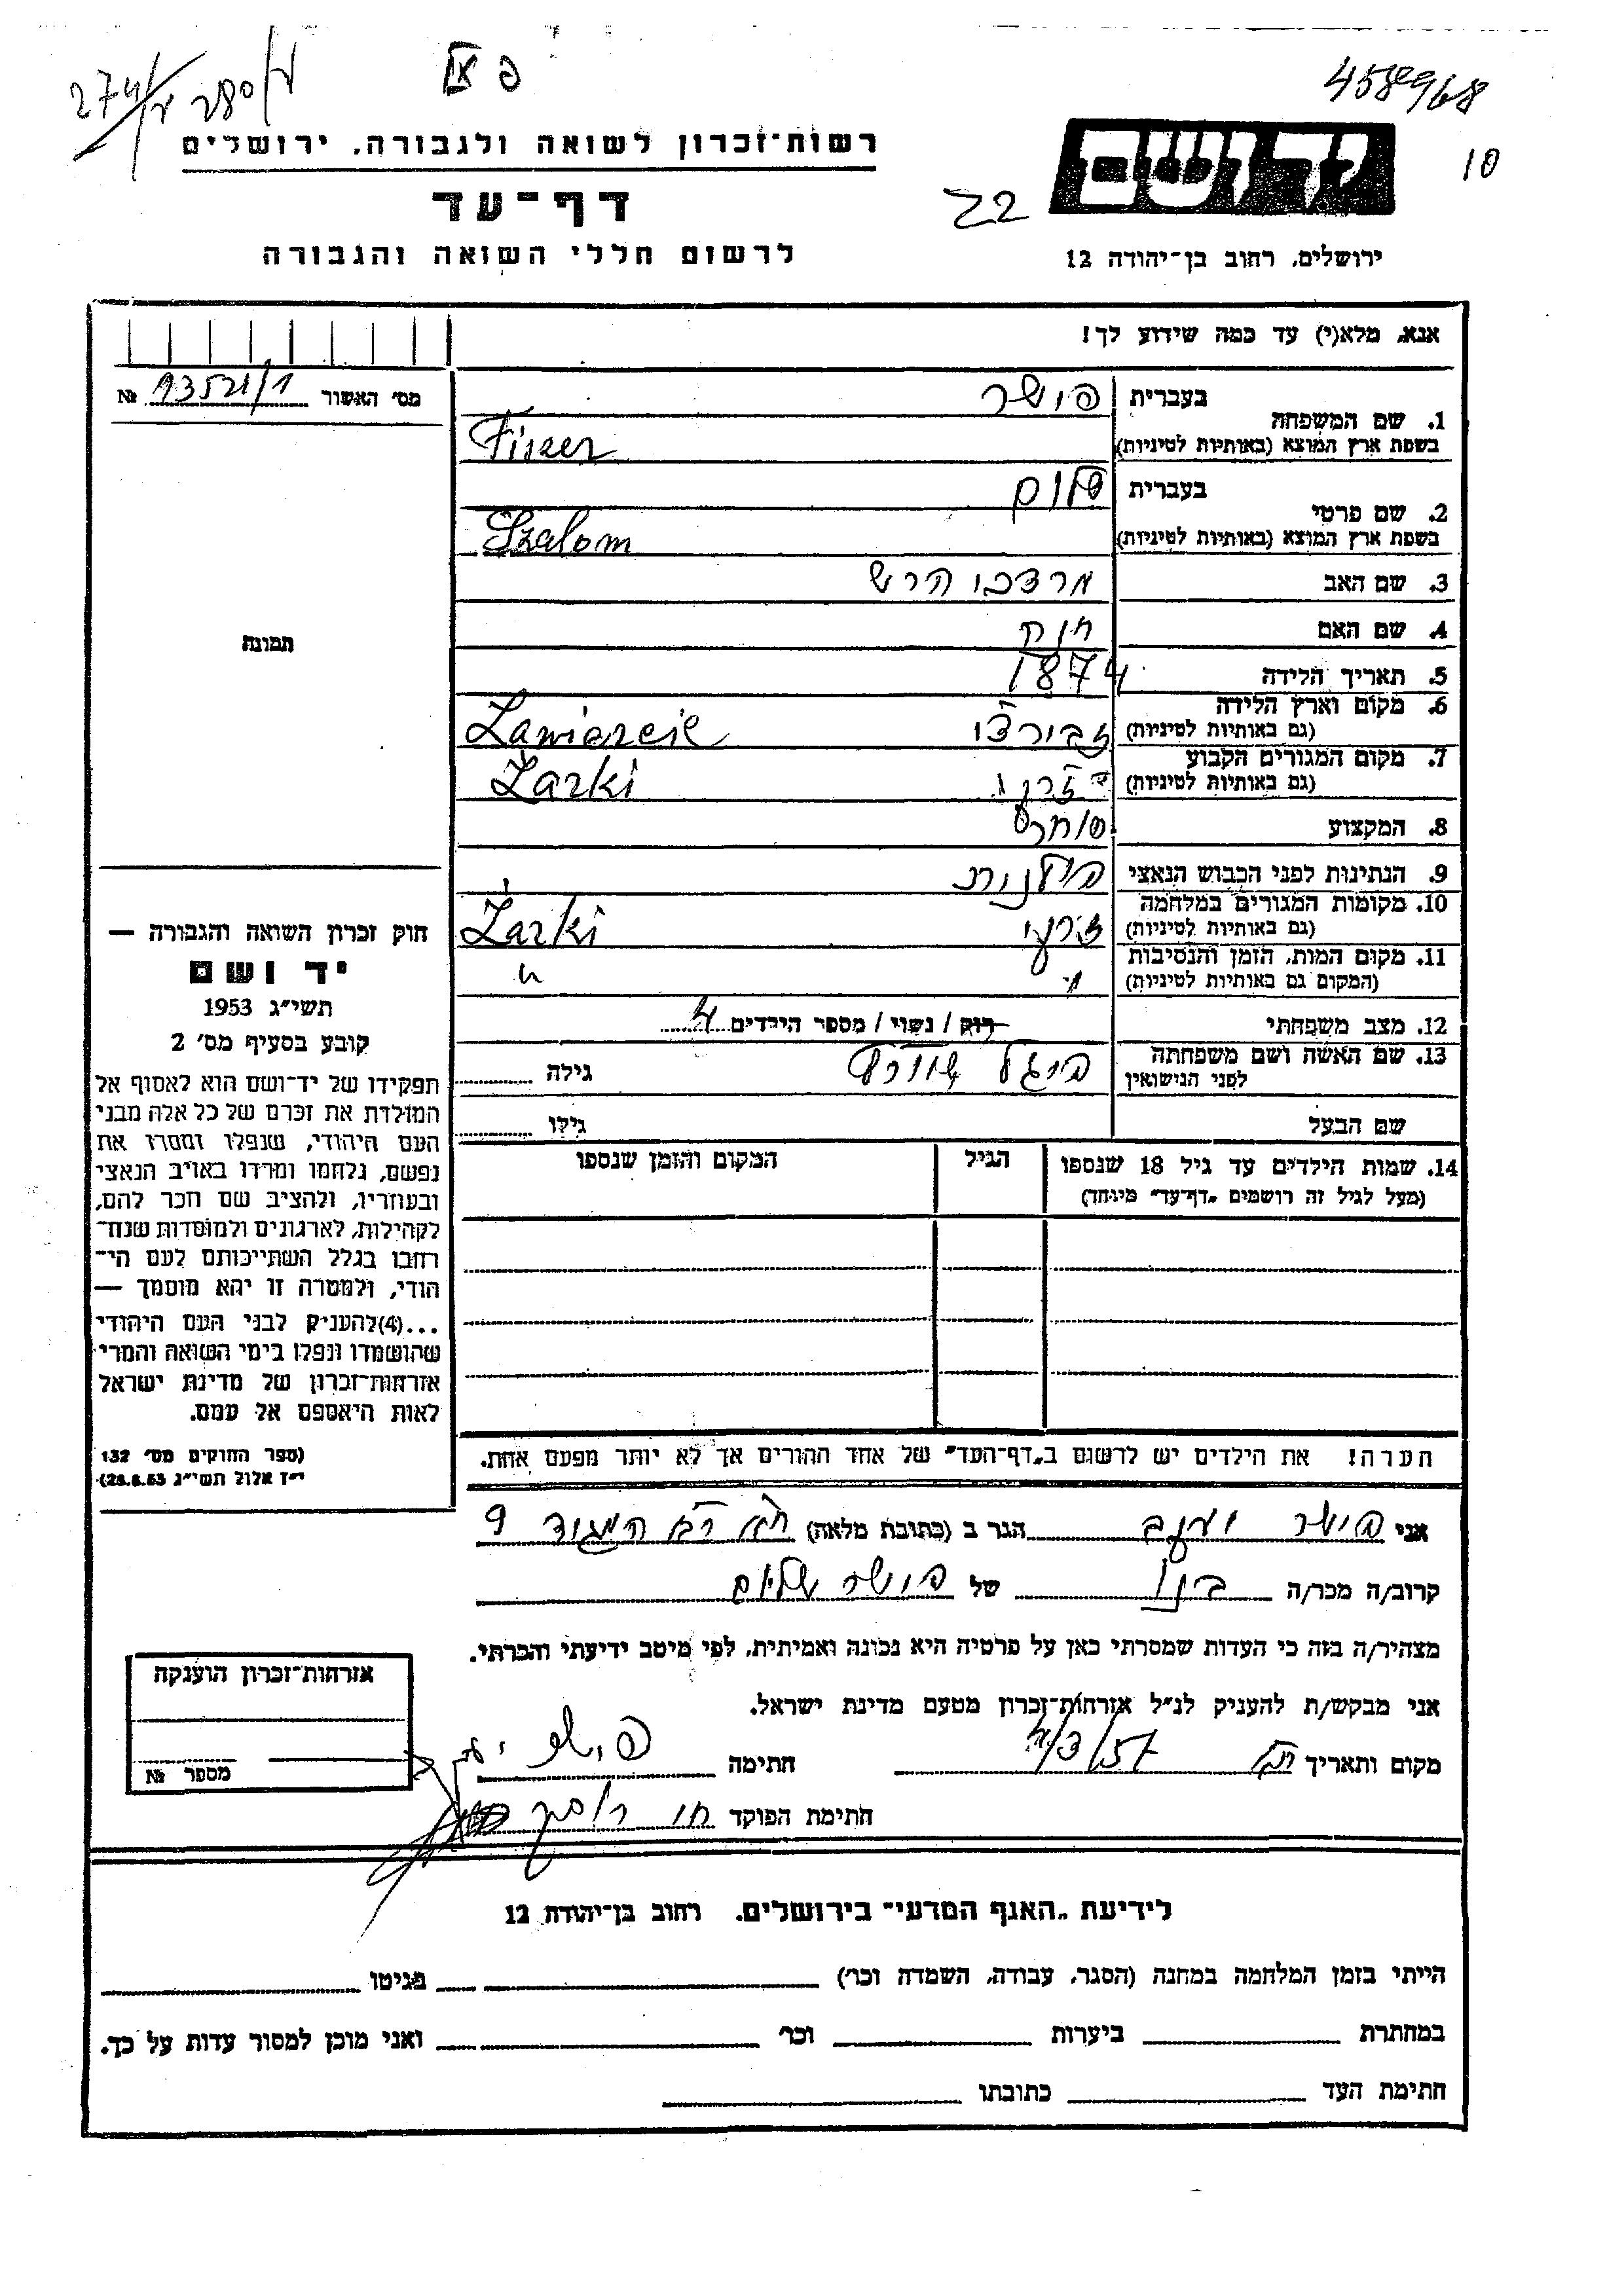 274/ח 280/ח
458968
10
רשות־זכרון לשואה ולגבורה, ירושלים
דף־עד
לרשום חללי השואה והגבורה
ידושם
22
ירושלים, רחוב בן־יהודה 12
אנא, מלא(י) עד כמה שידוע לך!
מס' האשור 13521/1 №
1. שם המשפחה
בעברית פישר
בשפת ארץ המוצא (באותיות לטיניות) Fiszer
2. שם פרטי
בעברית שלום
בשפת ארץ המוצא (באותיות לטיניות) Szalom
3. שם האב מרדכי הרש
4. שם האם
5. תאריך הלידה 1874
6. מקום וארץ הלידה
(גם באותיות לטיניות) זבירצ'י Zawiercie
7. מקום המגורים הקבוע
(גם באותיות לטיניות) ז'רקי Żarki
8. המקצוע סוחר
9. הנתינות לפני הכבוש הנאצי פולנית
10. מקומות המגורים במלחמה
(גם באותיות לטיניות) ז'רקי Żarki
11. מקום המות, הזמן והנסיבות
(המקום גם באותיות לטיניות) " "
12. מצב משפחתי רוק / נשוי / מספר הילדים 4
13. שם האשה ושם משפחתה
לפני הנישואין
גילה
שם הבעל גילו
14. שמות הילדים עד גיל 18 שנספו
(מעל לגיל זה רושמים „דף־עד" מיוחד)
הגיל
המקום והזמן שנספו
תמונה
חוק זכרון השואה והגבורה —
יד ושם
תשי״ג 1953
קובע בסעיף מס' 2
תפקידו של יד־ושם הוא לאסוף אל
המולדת את זכרם של כל אלה מבני
העם היהודי, שנפלו ומסרו את
נפשם, נלחמו ומרדו באויב הנאצי
ובעוזריו, ולהציב שם וזכר להם,
לקהילות, לארגונים ולמוסדות שנח־
רחבו בגלל השתייכותם לעם הי־
הודי, ולמטרה זו יהא מוסמך —
...(4) להעניק לבני העם היהודי
שהושמדו ונפלו בימי השואה והמרי
אזרחות־זכרון של מדינת ישראל
לאות היאספם אל עמם.
(ספר החוקים מס' 132
י״ז אלול תשי״ג 28.8.53)
הערה! את הילדים יש לרשום ב„דף־העד" של אחד ההורים אך לא יותר מפעם אחת.
אני פישר יעקב הגר ב (כתובת מלאה) 9
קרוב/ה מכר/ה בנו של פישר שלום
מצהיר/ה בזה כי העדות שמסרתי כאן על פרטיה היא נכונה ואמיתית, לפי מיטב ידיעתי והכרתי.
אני מבקש/ת להעניק לנ״ל אזרחות־זכרון מטעם מדינת ישראל.
מקום ותאריך חתימה פישר
חתימת הפוקד
אזרחות־זכרון הוענקה
מספר №
לידיעת „האגף המדעי" בירושלים. רחוב בן־יהודה 12
הייתי בזמן המלחמה במחנה (הסגר, עבודה, השמדה וכו') בגיטו
במחתרת ביערות וכו' ואני מוכן למסור עדות על כך.
חתימת העד כתובתו